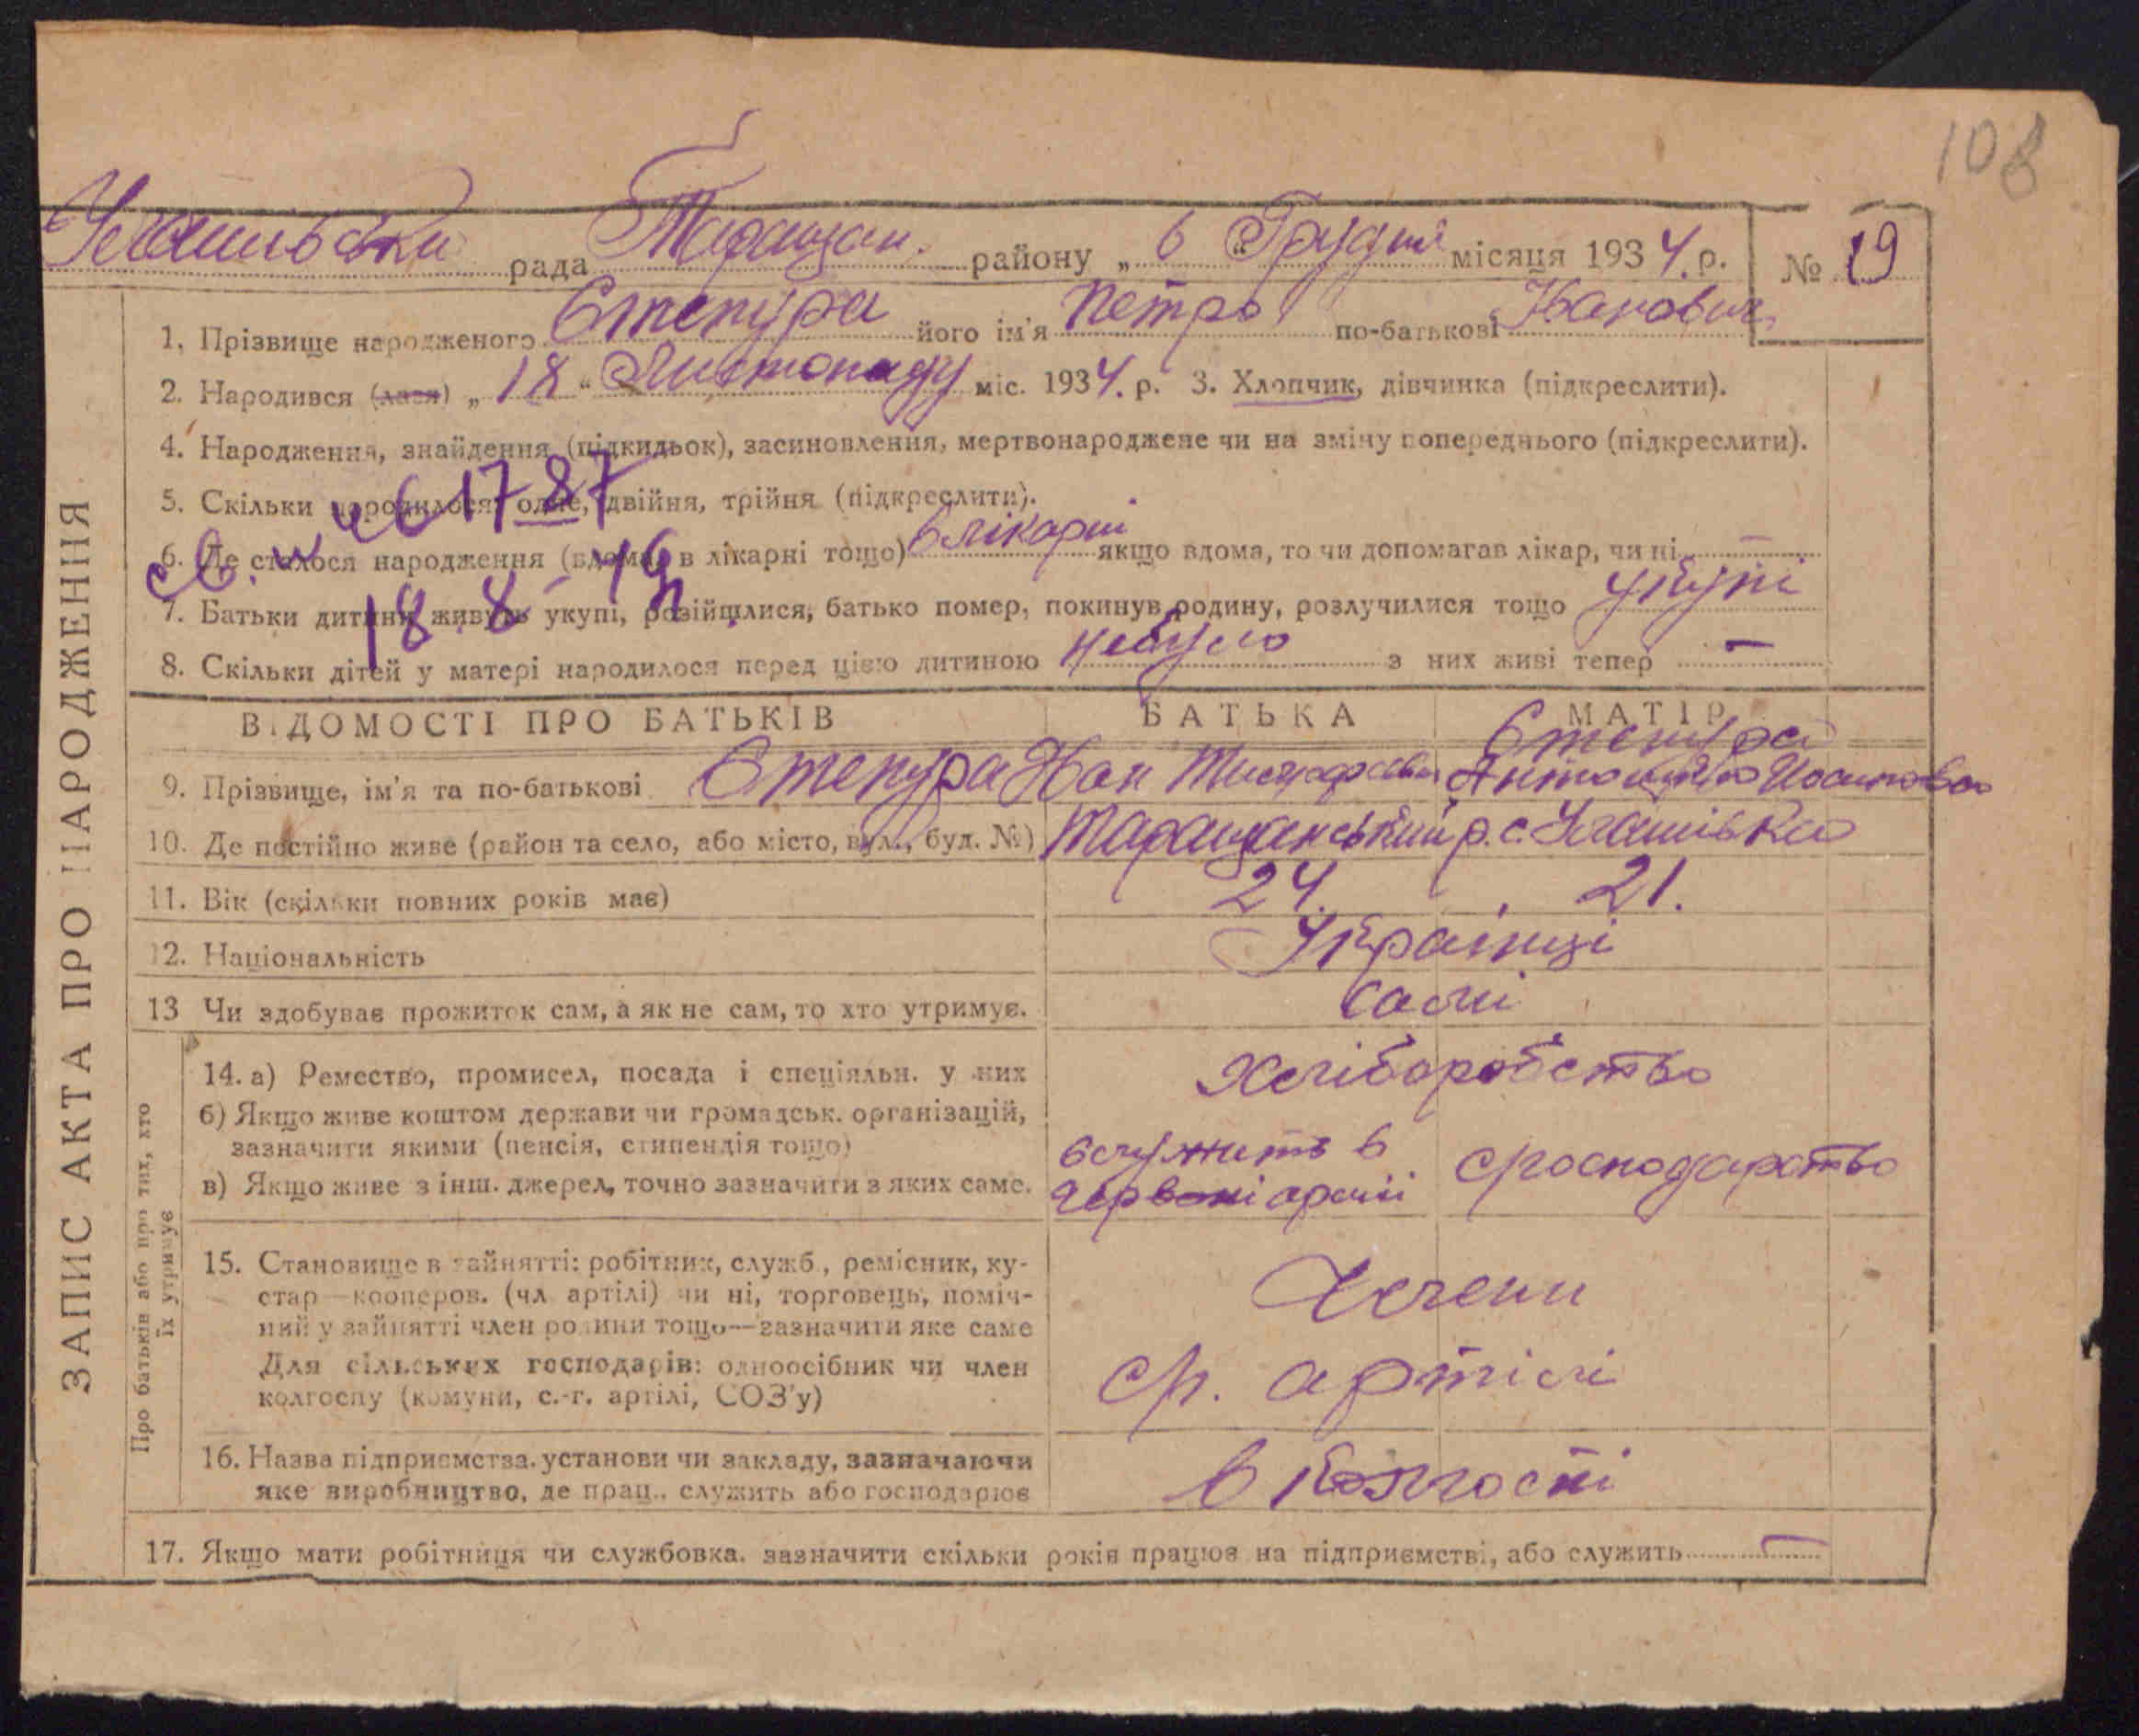 108
Улашівська рада Таращан. району „ 6 " Грудня місяця 1934. р. № 19
1. Прізвище народженого Степура його ім'я Петро по-батькові Іванович
2. Народився (лася) „ 18 " Листопаду міс. 1934. р. 3. Хлопчик, дівчинка (підкреслити).
4. Народження, знайдення (підкидьок), засиновлення, мертвонароджене чи на зміну попереднього (підкреслити).
5. Скільки народилося: одне, двійня, трійня (підкреслити).
6. Де сталося народження (вдома, в лікарні тощо) в лікарні якщо вдома, то чи допомагав лікар, чи ні —
7. Батьки дитини живуть укупі, розійшлися, батько помер, покинув родину, розлучилися тощо укупі
8. Скільки дітей у матері народилося перед цією дитиною небуло з них живі тепер —
ВІДОМОСТІ ПРО БАТЬКІВ БАТЬКА МАТІР
9. Прізвище, ім'я та по-батькові Степура Іван Степура
10. Де постійно живе (район та село, або місто, вул., буд. №) Таращанський р. с. Улашівка
11. Вік (скільки повних років має) 24. 21.
12. Національність Українці
13 Чи здобуває прожиток сам, а як не сам, то хто утримує. самі
14. а) Ремество, промисел, посада і спеціяльн. у них Хліборобство
б) Якщо живе коштом держави чи громадськ. організацій,
зазначити якими (пенсія, стипендія тощо) вслужить в
в) Якщо живе з інш. джерел, точно зазначити з яких саме. Червоні армії господарство
15. Становище в зайнятті: робітник, служб., ремісник, ку-
стар—кооперов. (чл. артілі) чи ні, торговець, поміч- Члени
ний у зайнятті член родини тощо—зазначити яке саме
Для сільських господарів: одноосібник чи член с/г. артілі
колгоспу (комуни, с.-г. артілі, СОЗ'у)
16. Назва підприємства, установи чи закладу, зазначаючи в колгоспі
яке виробництво, де прац., служить або господарює
17. Якщо мати робітниця чи службовка, зазначити скільки років працює на підприємстві, або служить —
ЗАПИС АКТА ПРО НАРОДЖЕННЯ
Про батьків або про тих, хто
їх утримує